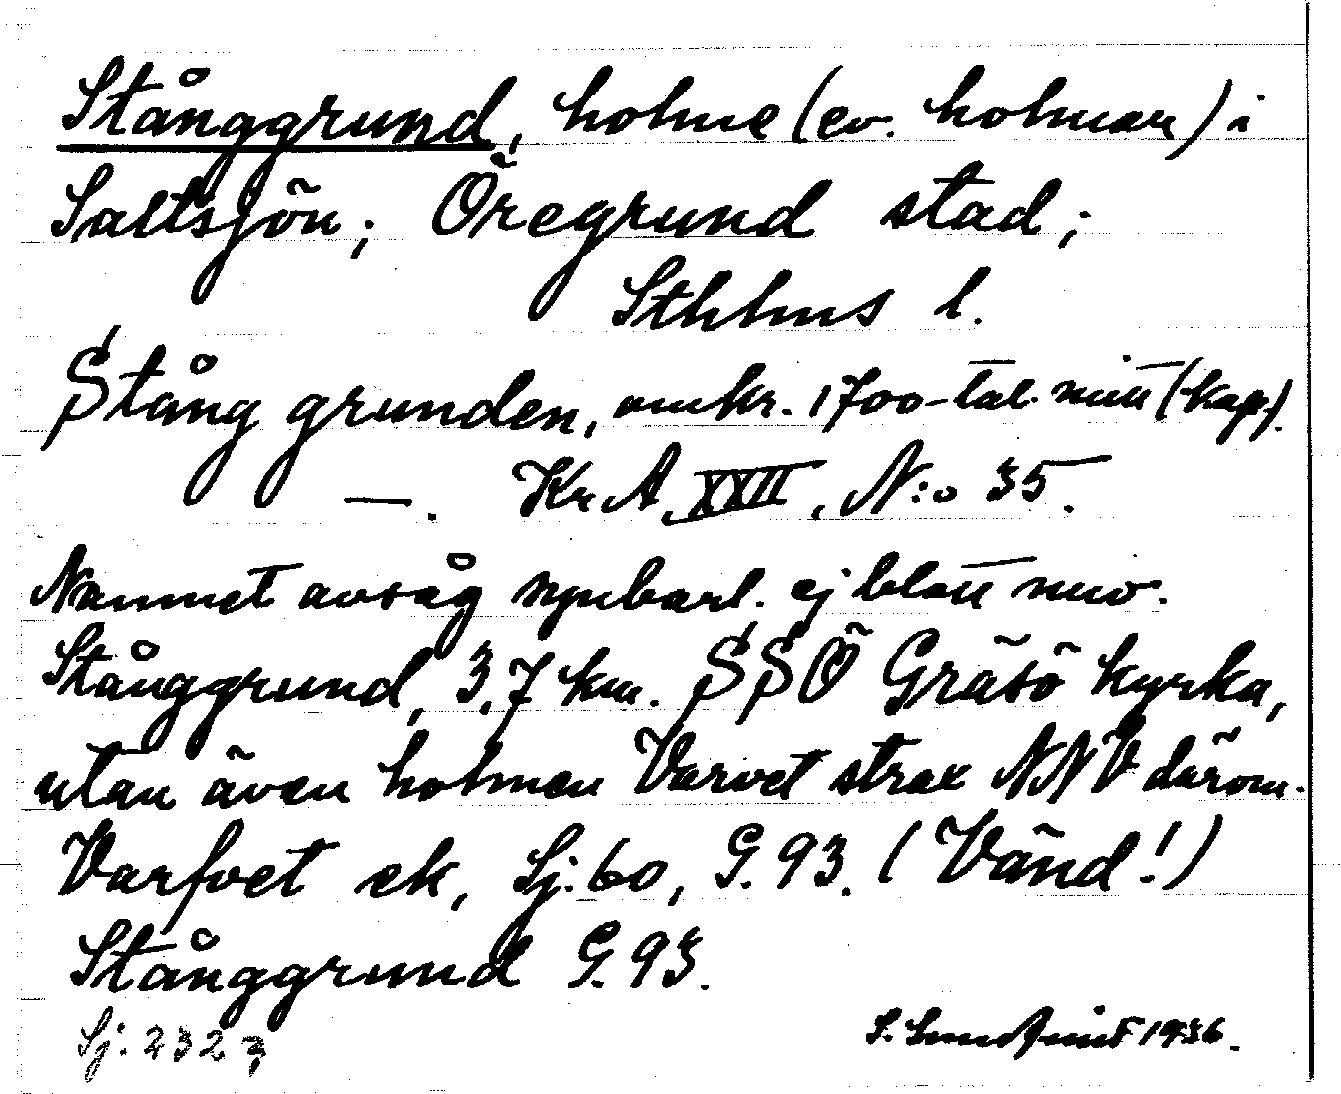 Stånggrund, holme (ev. holmar) i
Saltsjön; Öregrund stad;
Sthlms l.
Stång grunden, omkr. 1700-tal. mitt (kap.)
—. KrA, XXII, N:o 35.
Namnet avsåg uppenbarl. ej blott nuv.
Stånggrund, 3,7 km. SSÖ Gräsö kyrka,
utan även holmen Varvet strax NNV därom.
Varfvet ek, Sj. 60, G. 93. (Vänd!)
Stånggrund G. 93.
Sj. 232
S. 1936.